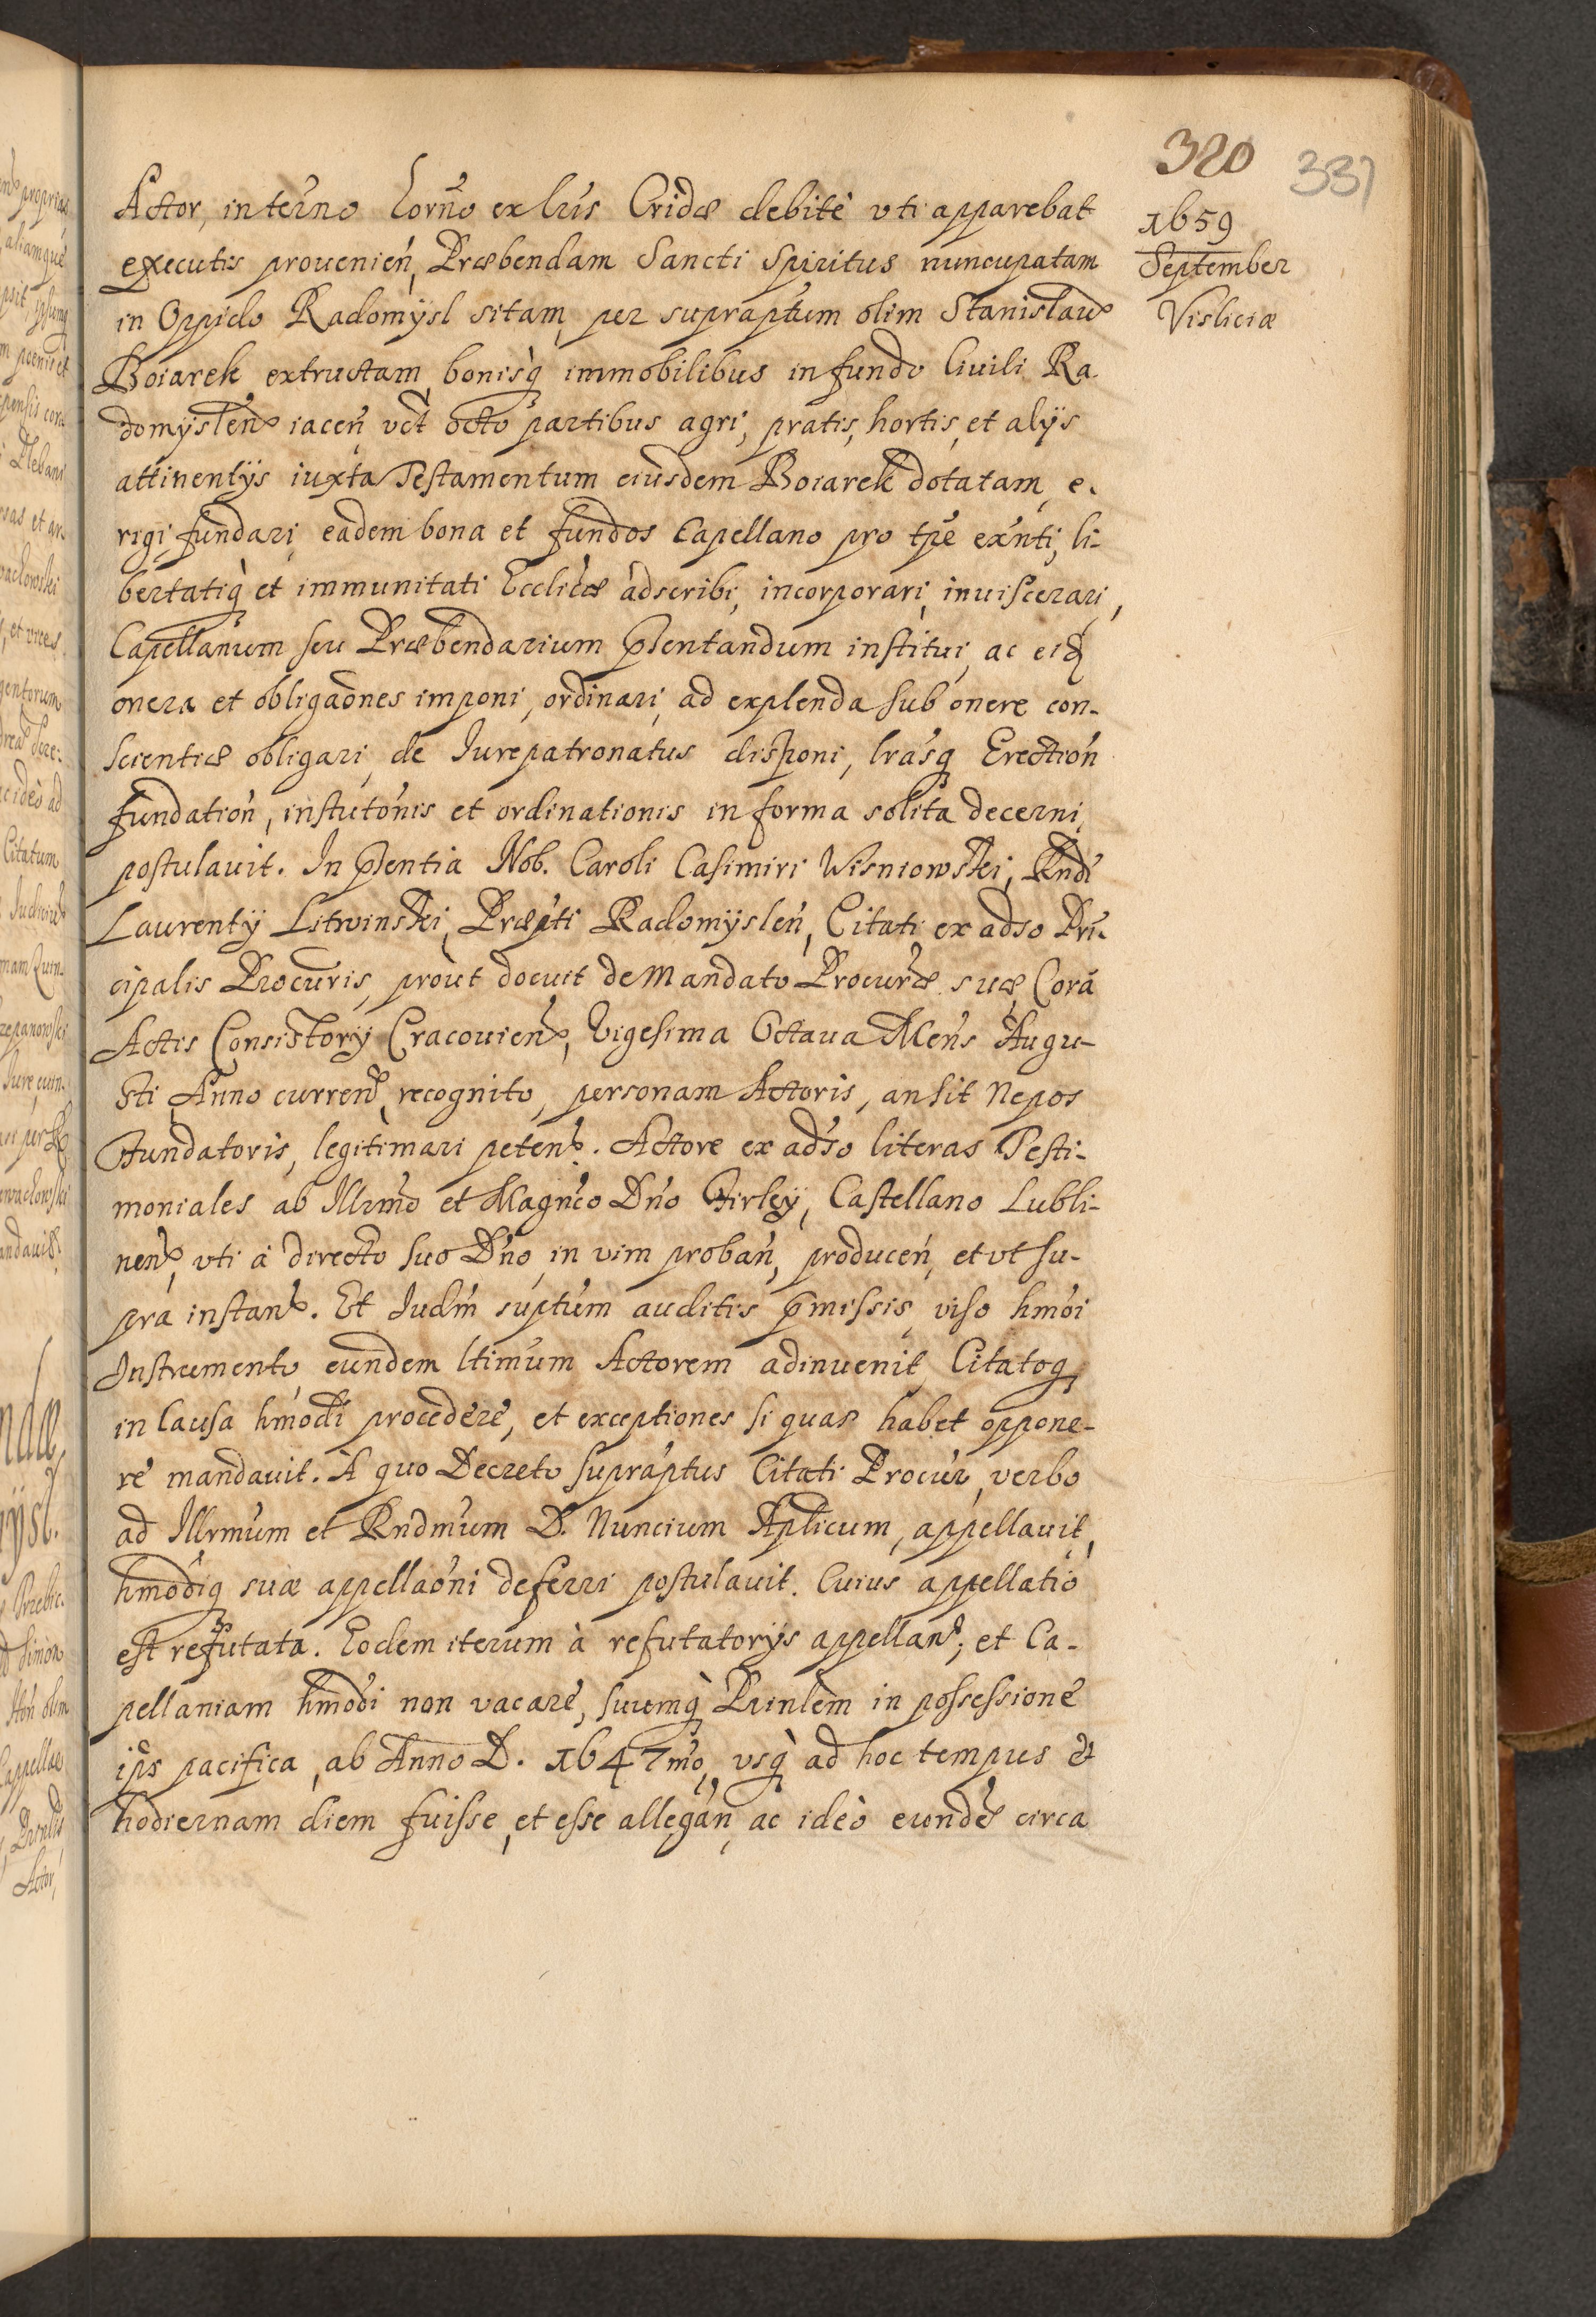 320 331
1659
September
Visliciæ
Actor, in termo horno ex lris Cridæ debitè vti apparebat
executis prouenien, Præbendam Sancti Spiritus nuncupatam
in Oppido Radomÿsl sitam, per supraptum olim Stanislaum
Boiarek extructam, bonisq̀ immobilibus in fundo Ciuili Ra-
domÿslen iacen vct octo partibus agri, pratis, hortis, et alÿs
attinentÿs iuxta Testamentum eiusdem Boiarek dotatam, e-
rigi, fundari, eadem bona et fundos Capellano pro tpe exnti, li-
bertatiq̀ et immunitati Ecclicæ adscribi, incorporari, inuiscerari,
Capellanum seu Præbendarium pſentandum institui, ac eid
onera et obligaones imponi, ordinari, ad explenda sub onere con-
scientiæ obligari, de Iurepatronatus disponi, lrasq Erection
fundation, instutonis et ordinationis in forma solita decerni,
postulauit. In pſentia Nob. Caroli Casimiri Wisniowski, Rndi
Laurentÿ Litwinski, Præpti Radomÿslen, Citati ex adso Prin-
cipalis Procuris, proùt docuit de Mandato Procuræ suæ, Corā
Actis Consistorÿ Cracouien, Vigesima Octaua Mens Augu-
sti Anno curren, recognito, personam Actoris, an sit Nepos
Fundatoris, legitimari peten. Actore ex adso literas Testi-
moniales ab Illrmo et Magnco Dno Firleÿ, Castellano Lubli-
nen, vti à directo suo Dno, in vim proban, producen, et vt su-
pra instan. Et Iudm suptum auditis pmissis, viso hmoi
Instrumento eundem ltimum Actorem adinuenit, Citatoq
in Causa hmodi procedere, et exceptiones si quas habet oppone-
re mandauit. A quo Decreto supraptus Citati Procur, verbo
ad Illrmum et Rndmum D. Nuncium Aplicum, appellauit,
hmodiq suæ appellaoni deferri postulauit. Cuius appellatio
est refutata. Eodem iterum à refutatorÿs appellan; et Ca-
pellaniam hmodi non vacare, suumq̀ Prinlem in possessione
ips pacifica, ab Anno D. 1647mo, vsq̀ ad hoc tempus et
hodiernam diem fuisse, et esse allegan, ac ideò eundē circa